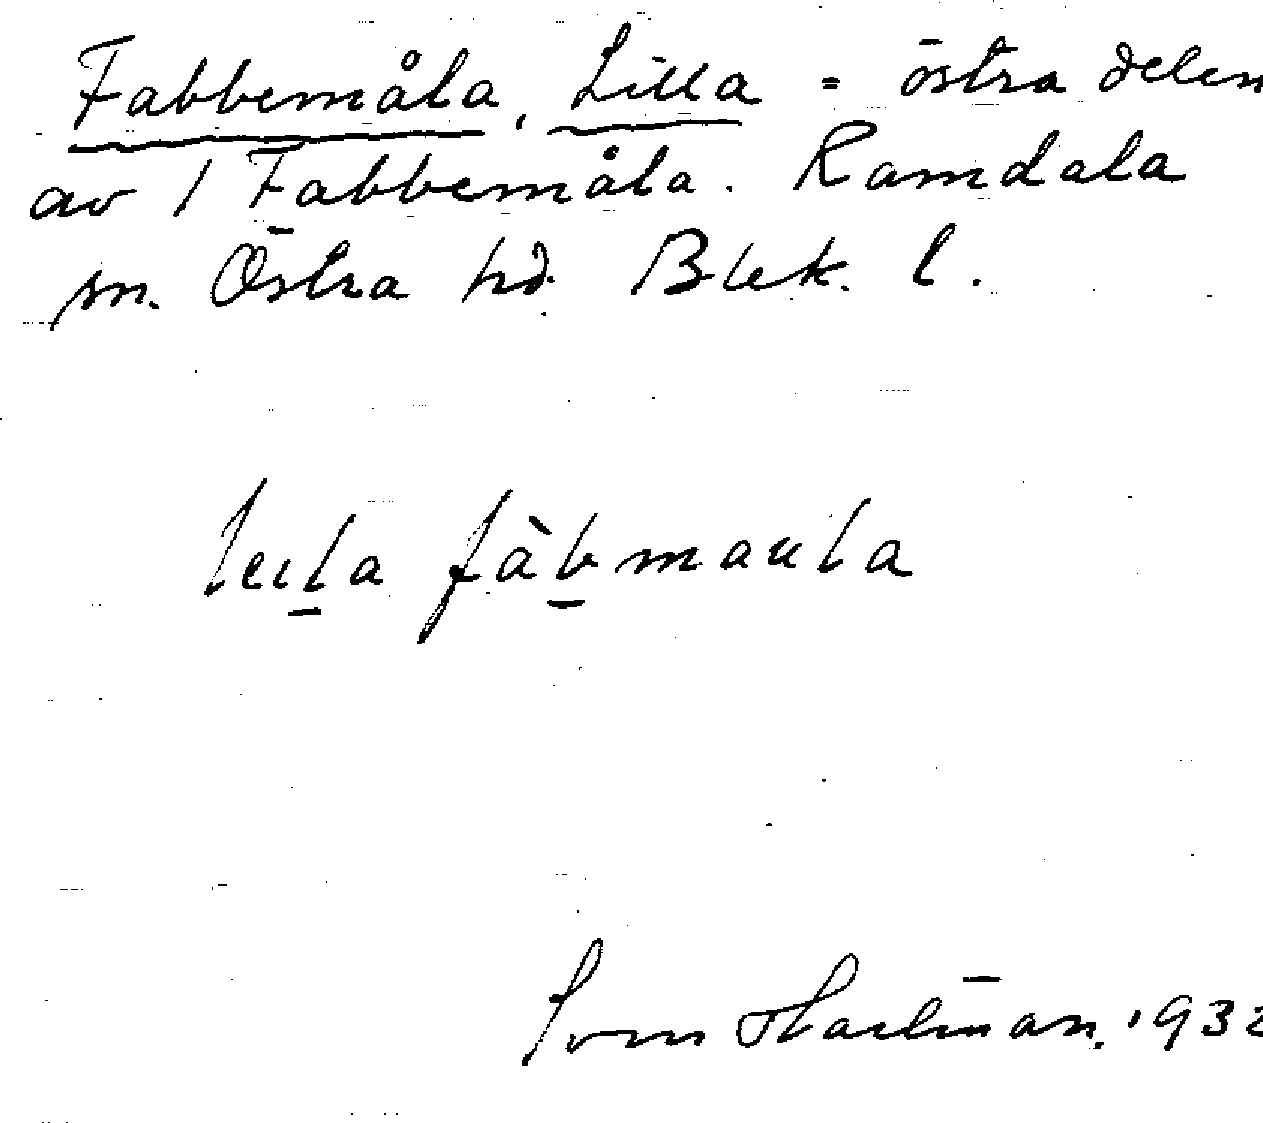 Fabbemåla, Lilla = östra delen
av 1 Fabbemåla. Ramdala
sn. Östra hd. Blek. l.
fàbmaula
Sven 1932